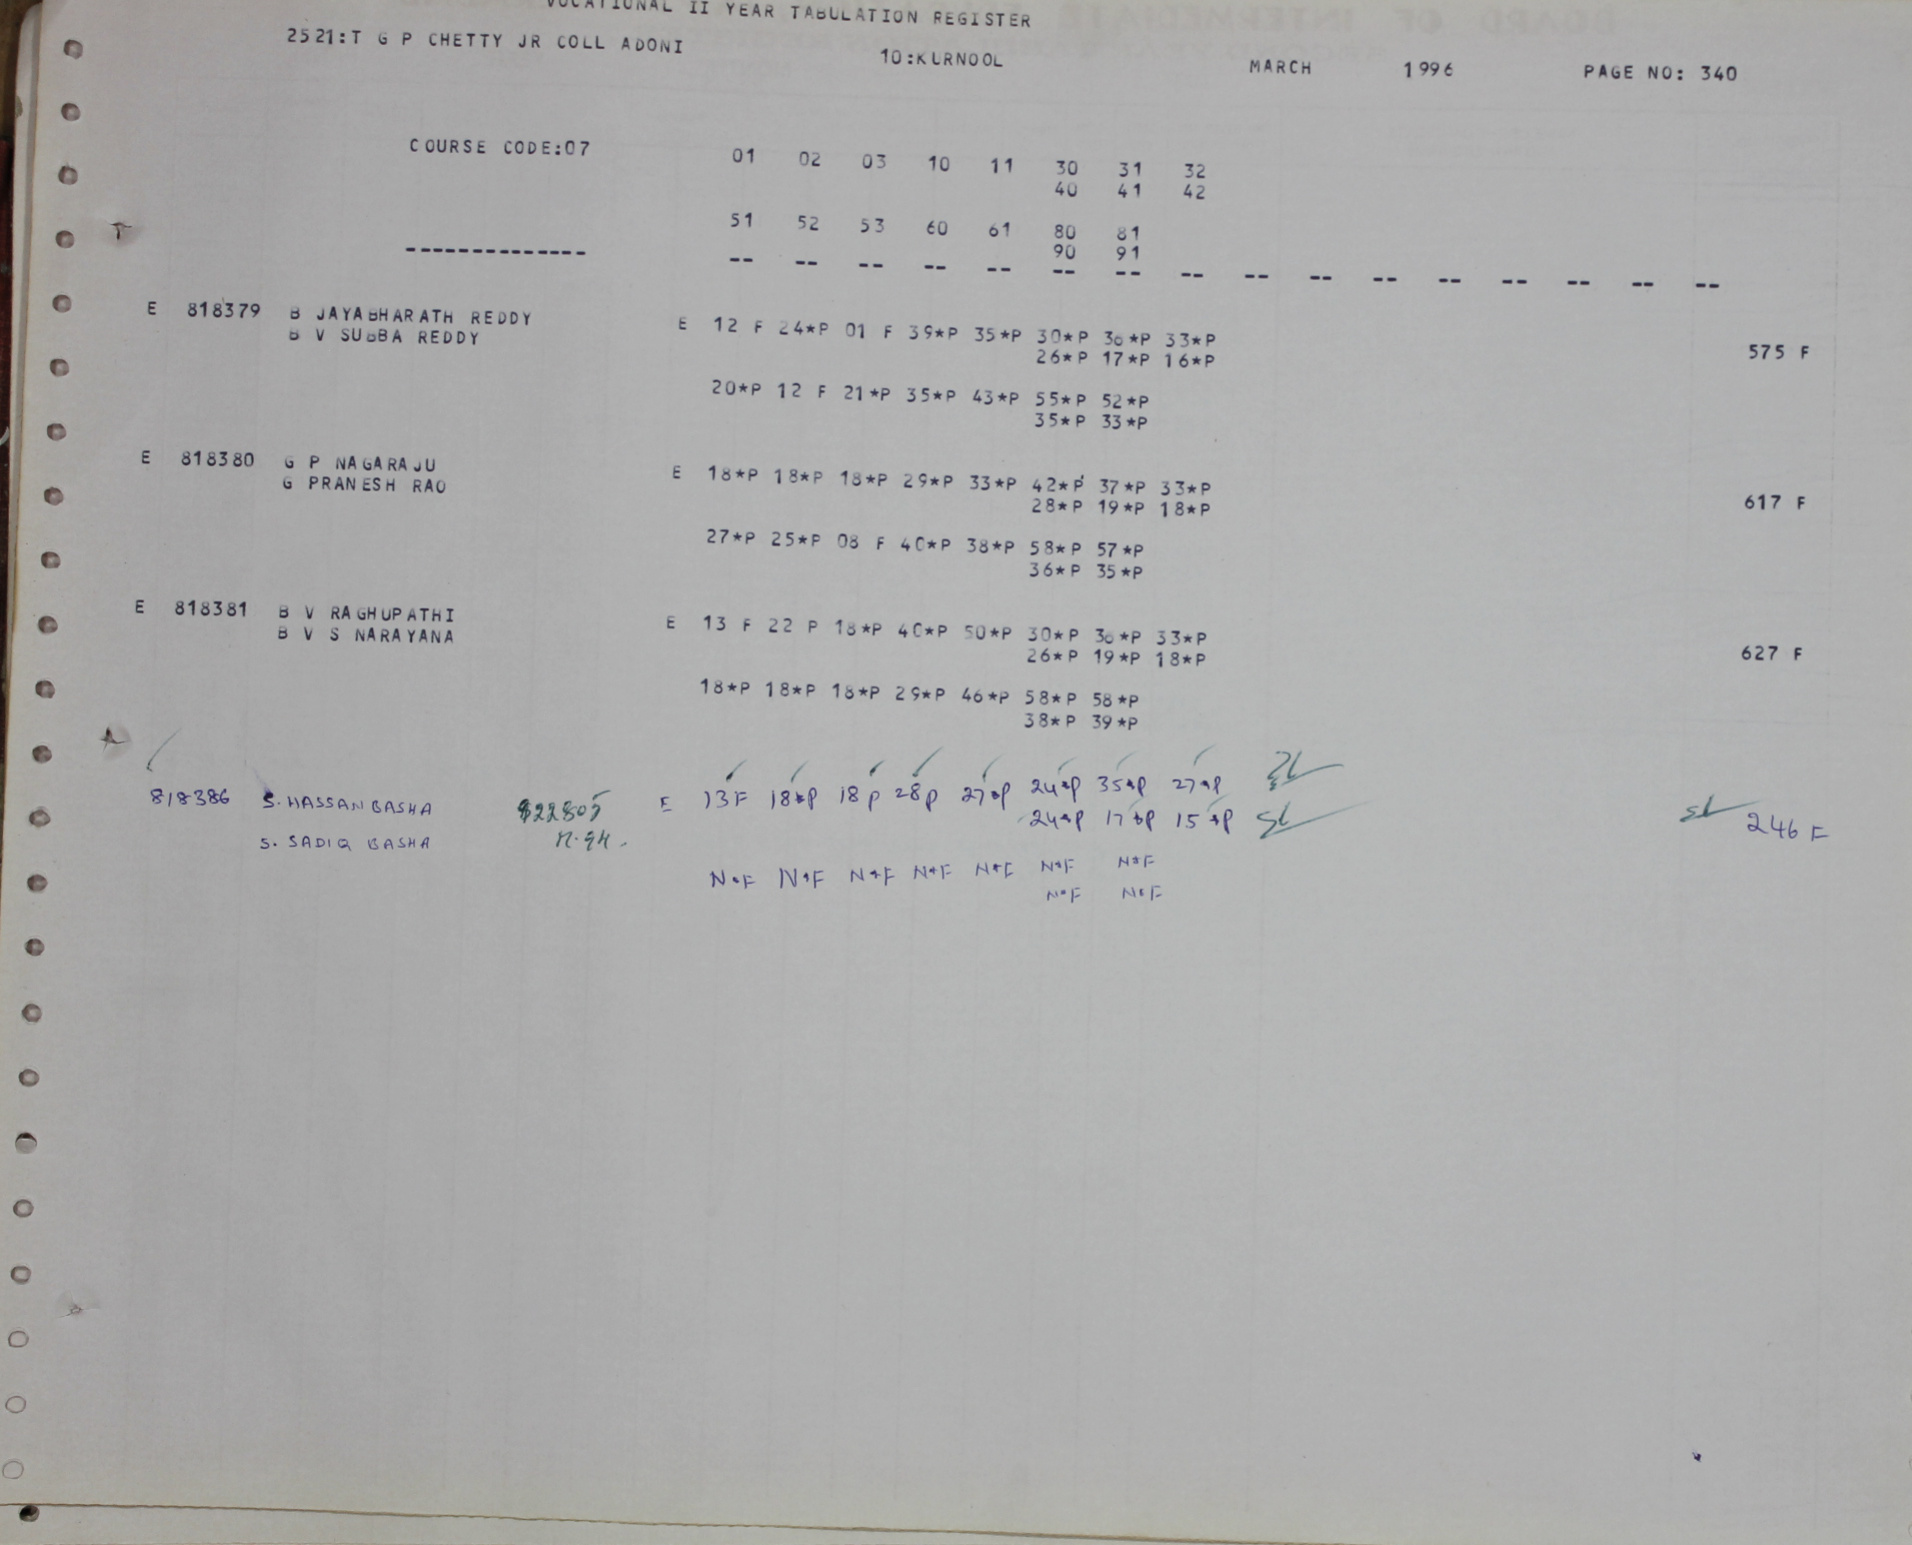 VOCATIONAL II YEAR TABULATION REGISTER
2521:T G P CHETTY JR COLL ADONI 10:KURNOOL MARCH 1996 PAGE NO: 340
COURSE CODE:07 01 02 03 10 11 30 31 32
40 41 42
51 52 53 60 61 80 81
90 91
-------------- -- -- -- -- -- -- -- -- -- -- -- -- -- -- -- --
E 818379 B JAYABHARATH REDDY E 12 F 24*P 01 F 39*P 35*P 30*P 36*P 33*P
B V SUBBA REDDY 26*P 17*P 16*P 575 F
20*P 12 F 21*P 35*P 43*P 55*P 52*P
35*P 33*P
E 818380 G P NAGARAJU E 18*P 18*P 18*P 29*P 33*P 42*P 37*P 33*P
G PRANESH RAO 28*P 19*P 18*P 617 F
27*P 25*P 08 F 40*P 38*P 58*P 57*P
36*P 35*P
E 818381 B V RAGHUPATHI E 13 F 22 P 18*P 40*P 50*P 30*P 36*P 33*P
B V S NARAYANA 26*P 19*P 18*P 627 F
18*P 18*P 18*P 29*P 46*P 58*P 58*P
38*P 39*P
818386 S. HASSAN BASHA 822805 E 13F 18*P 18P 28P 27*P 24*P 35*P 27*P
S. SADIQ BASHA 24*P 17*P 15*P 246 F
N*F N*F N*F N*F N*F N*F N*F
N*F N*F